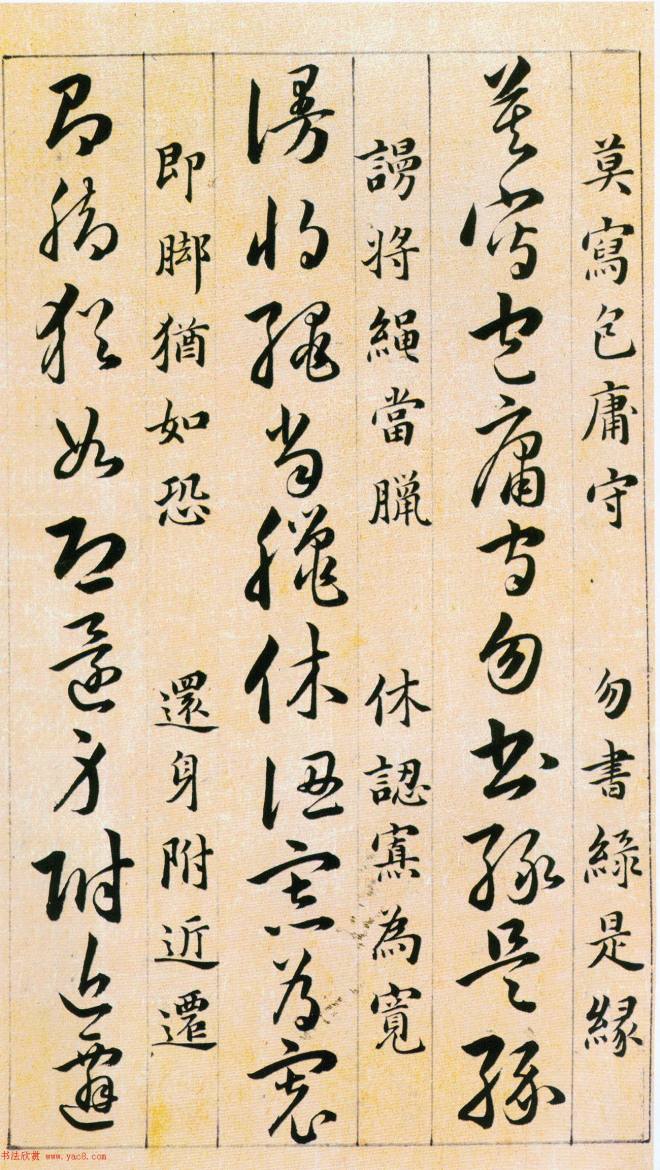 莫寫包庸守 勿書綠是緣
莫寫包庸守勿書綠是緣
謾將繩當臘 休認寡為寬
謾將繩當臘休認寡為寬
即脚猶如恐 還身附近遷
即脚猶如恐還身附近遷
书法欣赏 www.yac8.com